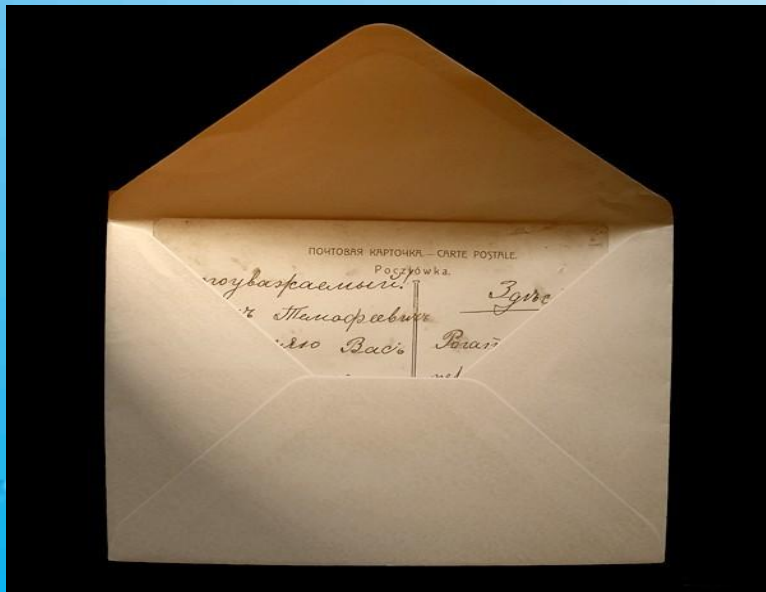 ПОЧТОВАЯ КАРТОЧКА. — CARTE POSTALE.
Pocztówka.
гоуважаемый!
ъ Тимофеевичъ
ляю Васъ
Здѣс